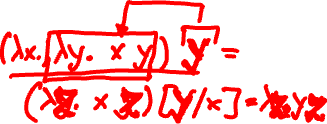 (λx. λy. x y) y =
(λz. x z) [y/x] = λz. y z